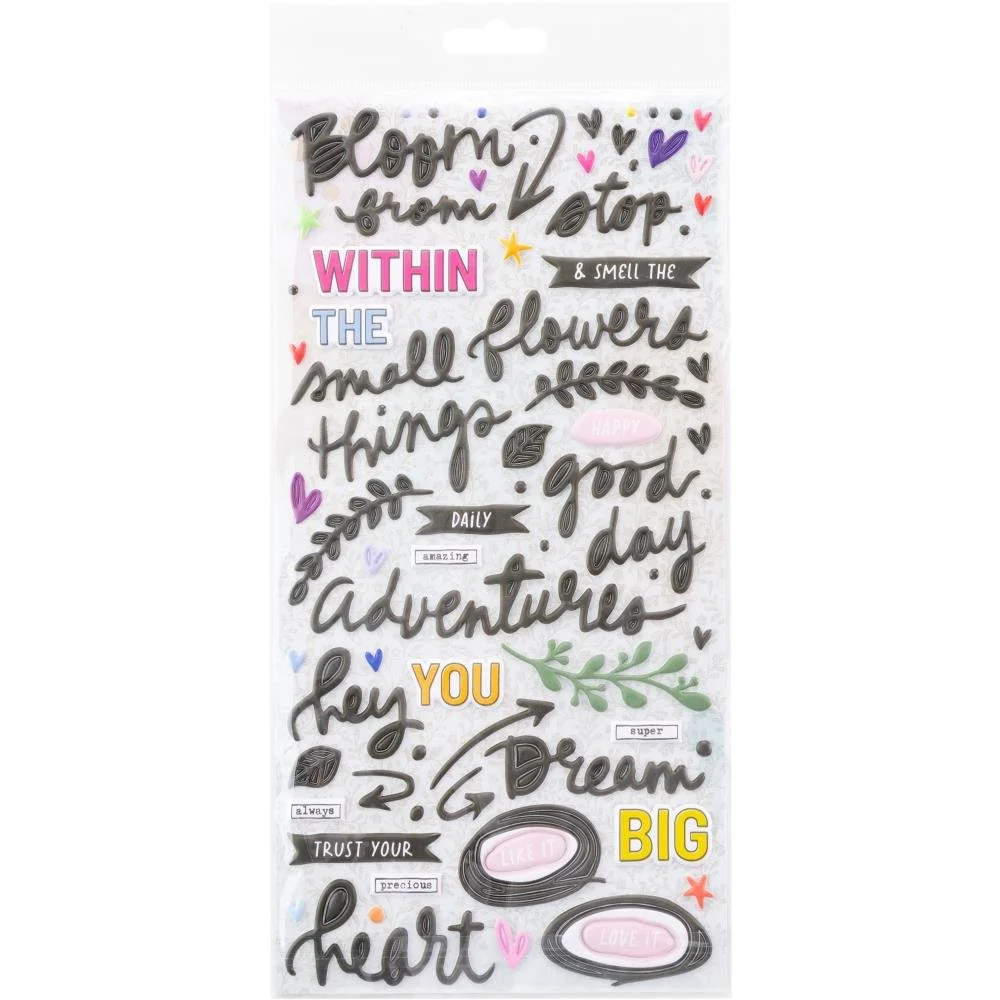 Bloom
from
stop.
WITHIN
& SMELL THE
THE
flowers
small
things
HAPPY
good
day
DAILY
amazing
Adventures
hey
YOU
super
Dream
BIG
always
TRUST YOUR
LIKE IT
precious
heart
LOVE IT